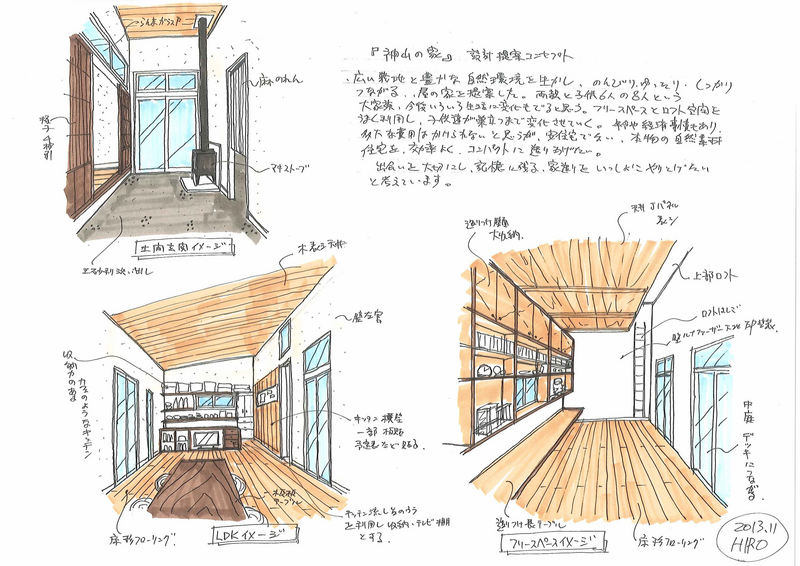 『神山の家』 設計提案コンセプト
広い敷地と豊かな自然環境を生かし、のんびり、ゆったり、しっかり
つながる、　屋の家を提案した。両親と子供6人の8人という
大家族、今後いろいろ生活に変化もでると思う。フリースペースとロフト空間を
うまく利用し、子供達が巣立つまで変化させていく。　経済事情もあり、
多大な費用はかけられないと思うが、　住宅でない、本物の自然素材
住宅を、効率よく、コンパクトに造りあげたい。
出会いを大切にし、記憶に残る、家造りをいっしょにやりとげたい
と考えています。
麻のれん
格子
マキストーブ
土間玄関イメージ
洗い出し
木表し天井
壁左官
収納力のある
カフェのようなキッチン
キッチン横壁
一部板貼
予定表など貼る。
テーブル
利用し収納・テレビ棚
とする。
床杉フローリング
LDKイメージ
造りつけ壁面
大収納。
天井Jパネル
表し
上部ロフト
ロフトはしご
壁ルナファーザー
中庭デッキにつながる。
造りつけ長テーブル
フリースペースイメージ
床杉フローリング
2013.11
HIRO